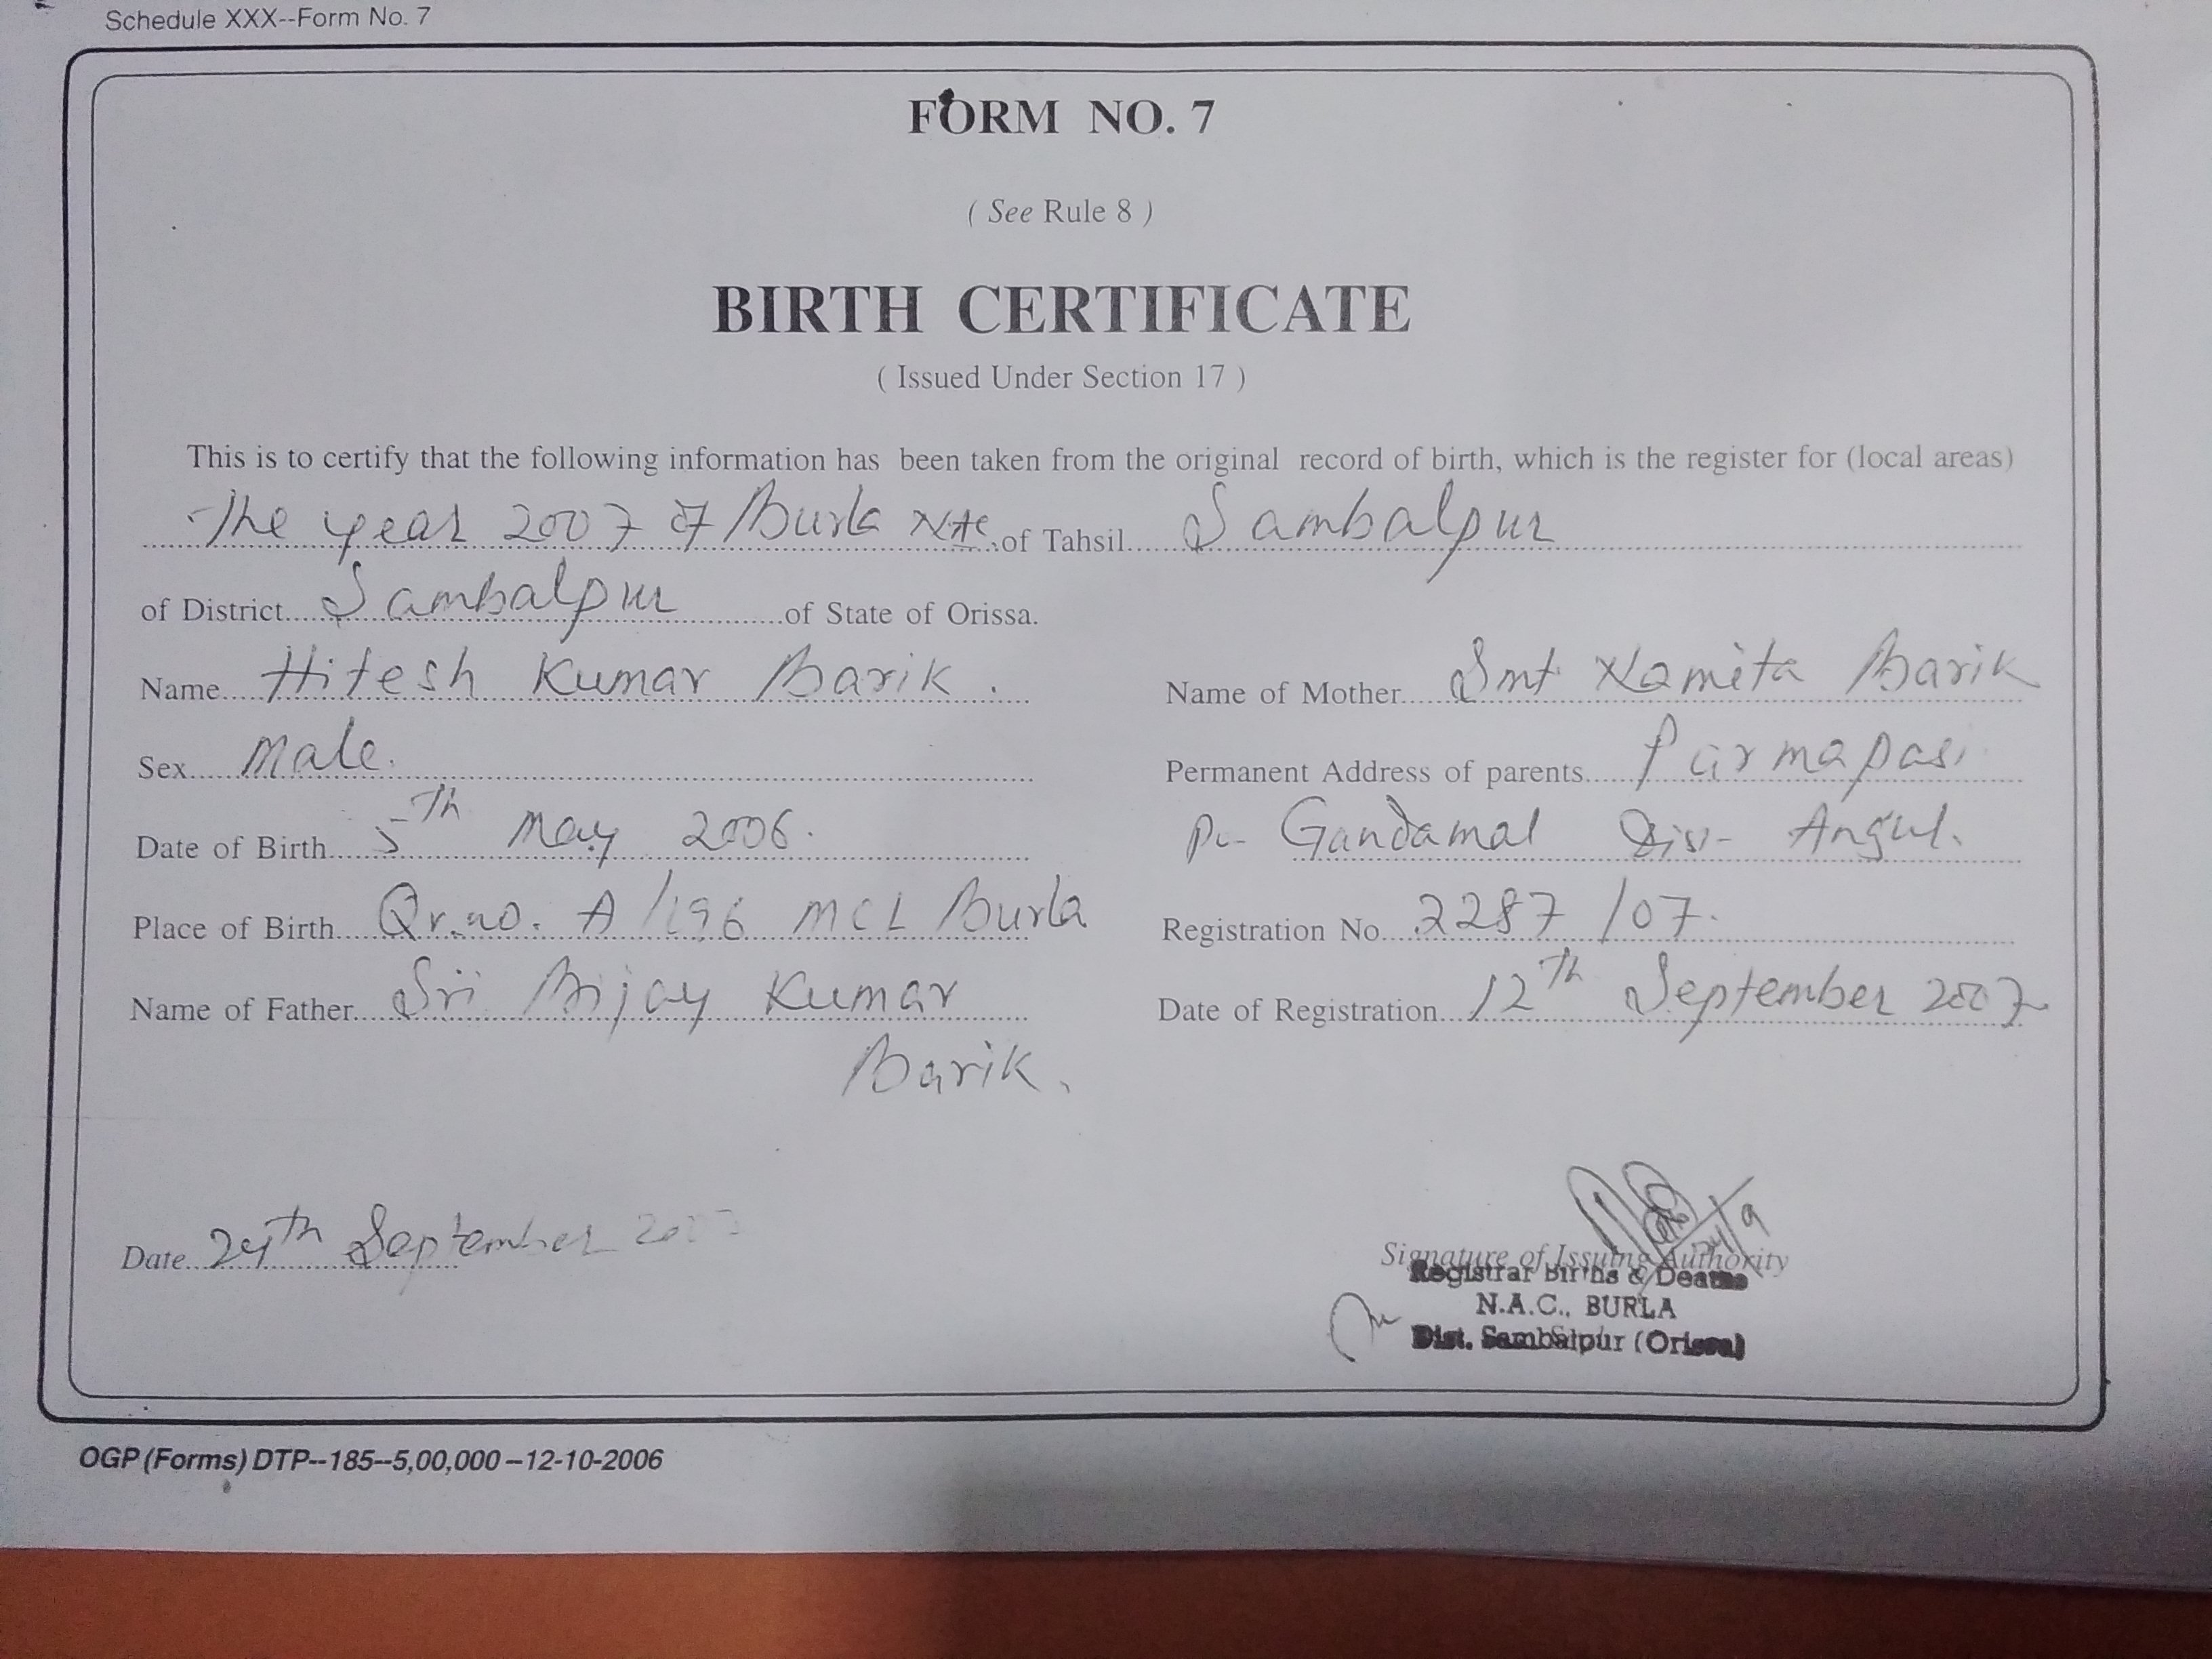 Schedule XXX--Form No. 7
FORM NO. 7
( See Rule 8 )
BIRTH CERTIFICATE
( Issued Under Section 17 )
This is to certify that the following information has been taken from the original record of birth, which is the register for (local areas)
The year 2007 of Burla NAC of Tahsil Sambalpur
of District Sambalpur of State of Orissa.
Name Hitesh Kumar Barik.
Name of Mother Smt Namita Barik
Sex Male.
Permanent Address of parents Parmapasi
Date of Birth 5th May 2006.
Po- Gandamal Dist- Angul.
Place of Birth Qr.no. A/196 MCL Burla
Registration No. 2287/07.
Name of Father Sri Bijay Kumar
Barik.
Date of Registration 12th September 2007
Date 24th September 2007
24/9
Signature of Issuing Authority
Registrar Births & Deaths
N.A.C., BURLA
Dist. Sambalpur (Orissa)
OGP (Forms) DTP--185--5,00,000--12-10-2006